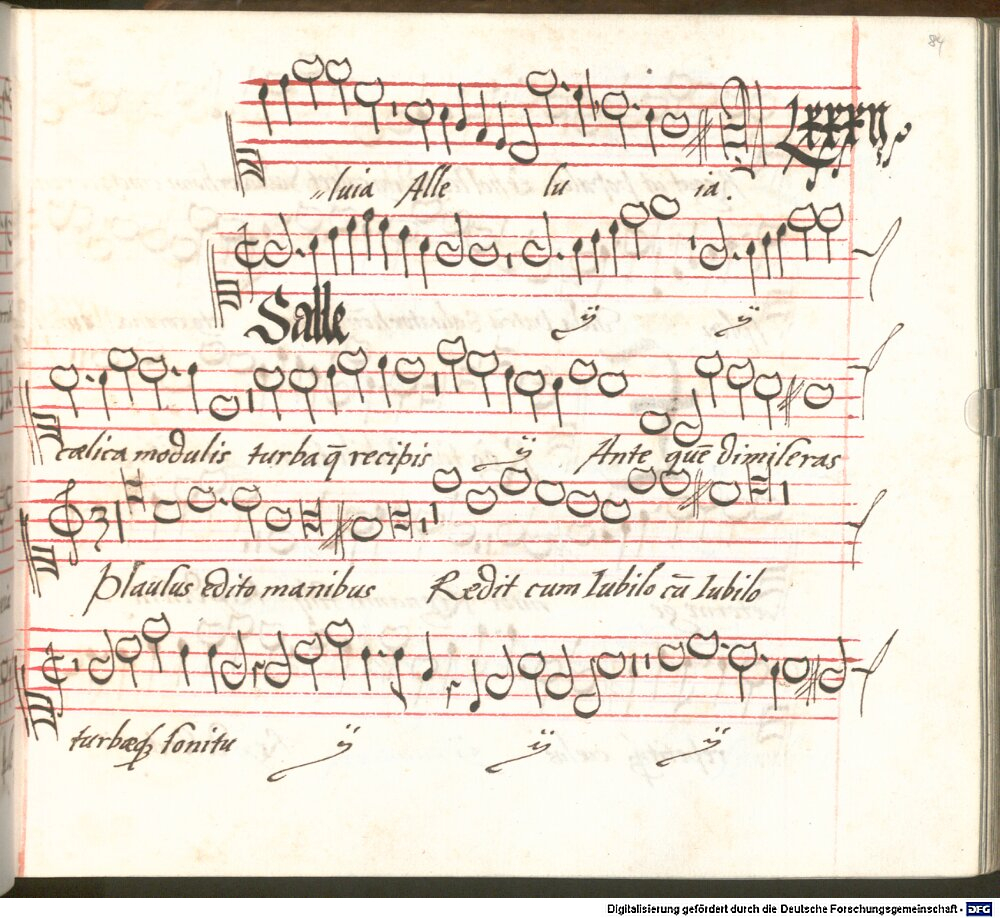 84
Lxxxij.
„luia Alle lu ia.
Salle
ÿ ÿ
cœlica modulis turba q̄ recipis ÿ Ante quē dimiseras
Plausus edito manibus Redit cum Iubilo cū Iubilo
turbæq; sonitu ÿ ÿ ÿ
Digitalisierung gefördert durch die Deutsche Forschungsgemeinschaft - DFG